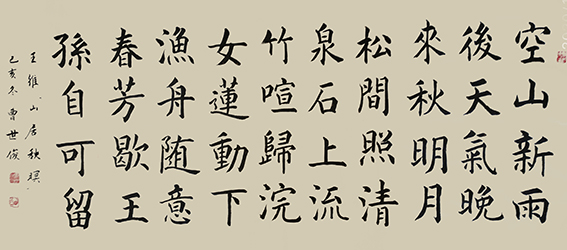 空山新雨
後天氣晚
來秋明月
松間照清
泉石上流
竹喧歸浣
女蓮動下
漁舟随意
春芳歇王
孫自可留
王維山居秋暝
己亥冬曹世俊